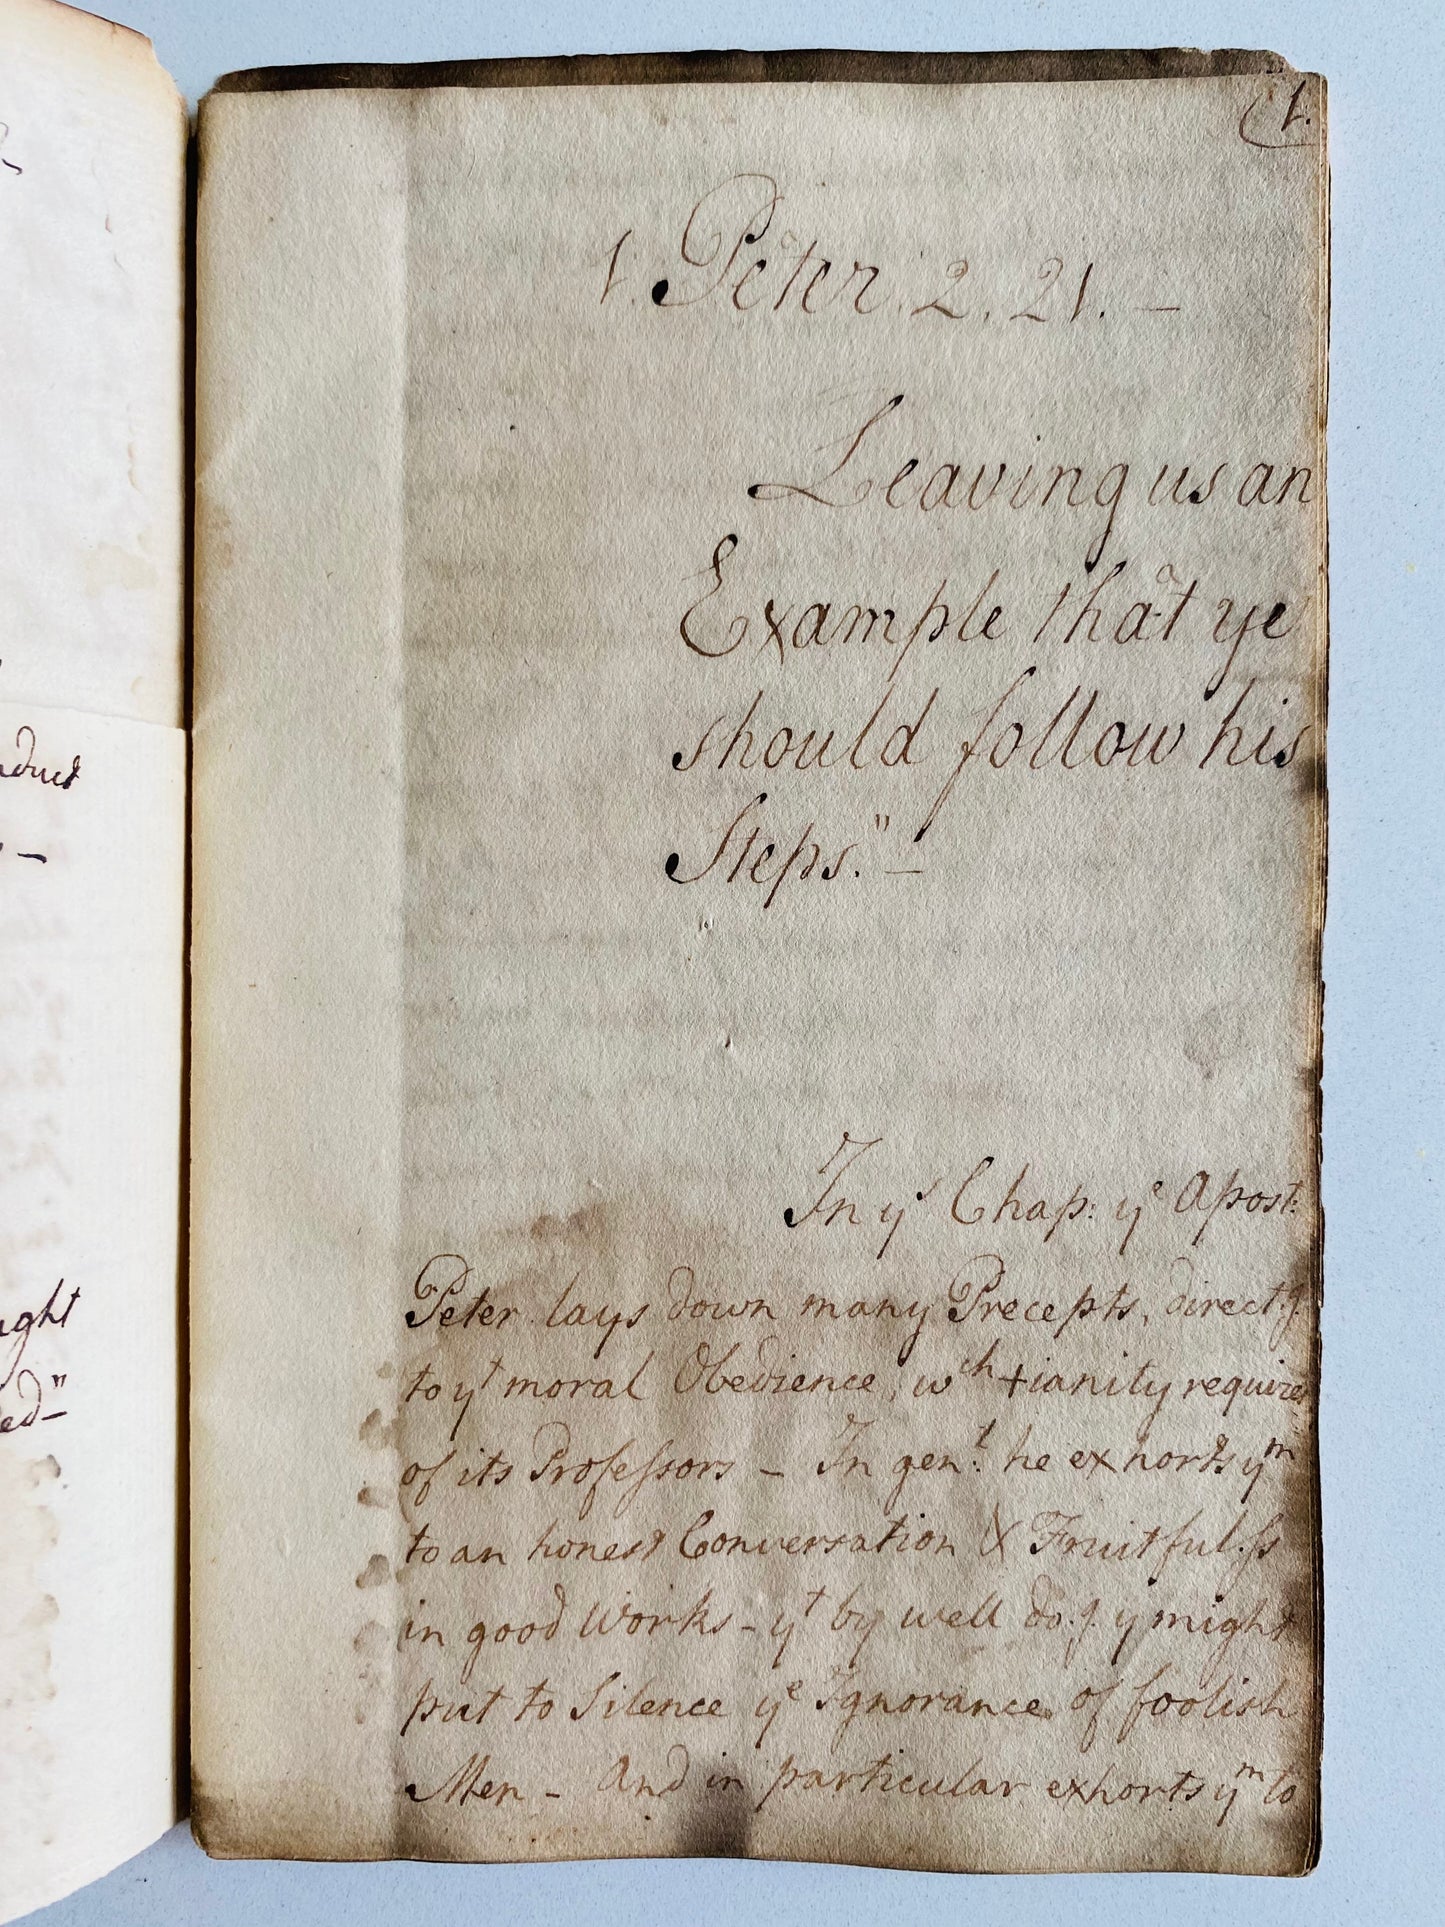 nduct
ught
ed"
1.
1. Peter. 2. 21. —
Leaving us an
Example that ye
should follow his
Steps." —
In yˢ Chap: yᵉ Apost:
Peter lays down many Precepts, direct.g.
to yᵗ moral Obedience, wᶜʰ +ianity requires
of its Professors – In genˡ: he exhorts yᵐ
to an honest Conversation & Fruitful.ss
in good Works – yᵗ by well do.g. y might
put to Silence yᵉ Ignorance of foolish
Men – And in particular exhorts yᵐ to